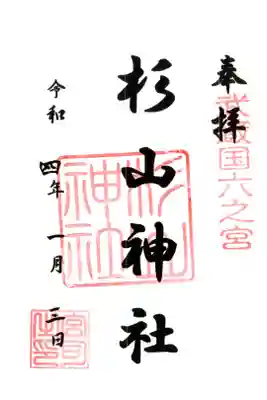 奉拝
武蔵国六之宮
杉山神社
杉山神社
令和四年一月三日